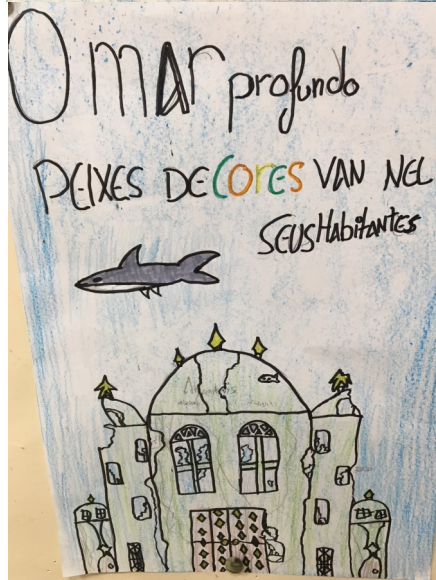 O mar profundo
PEIXES DE Cores VAN NEL
SEUS Habitantes